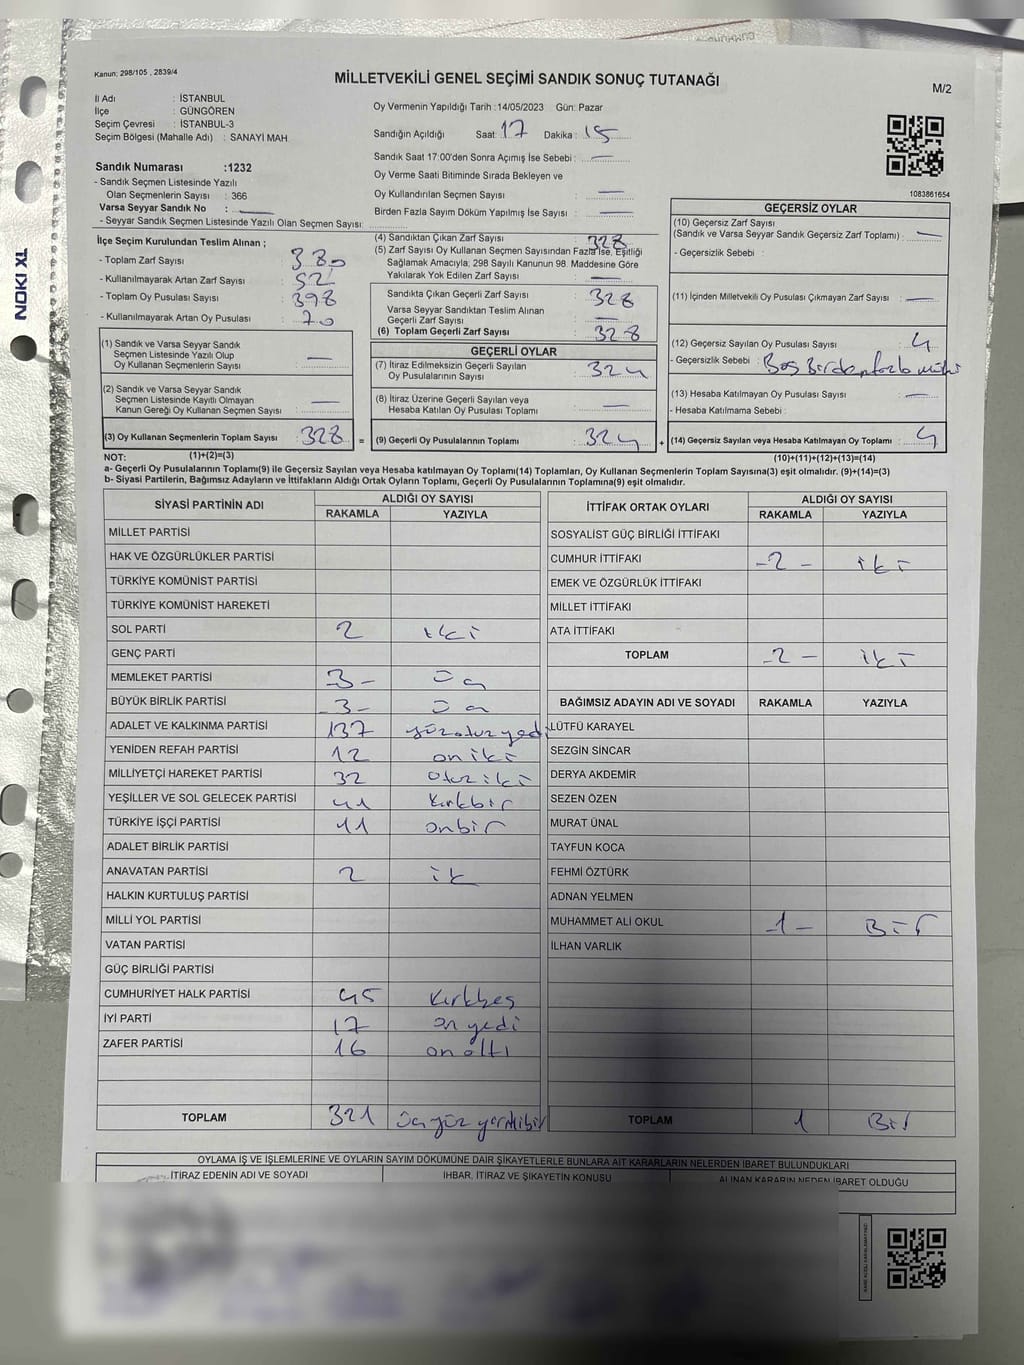 Kanun; 298/105 , 2839/4
MİLLETVEKİLİ GENEL SEÇİMİ SANDIK SONUÇ TUTANAĞI
M/2
İl Adı : İSTANBUL
İlçe : GÜNGÖREN
Seçim Çevresi : İSTANBUL-3
Seçim Bölgesi (Mahalle Adı) : SANAYİ MAH.
Oy Vermenin Yapıldığı Tarih :14/05/2023 Gün: Pazar
Sandığın Açıldığı Saat: 17 Dakika : 15
Sandık Saat 17:00'den Sonra Açımış İse Sebebi : —
Oy Verme Saati Bitiminde Sırada Bekleyen ve
Oy Kullandırılan Seçmen Sayısı —
Birden Fazla Sayım Döküm Yapılmış İse Sayısı : —
1083861654
Sandık Numarası :1232
- Sandık Seçmen Listesinde Yazılı
Olan Seçmenlerin Sayısı : 366
Varsa Seyyar Sandık No : —
- Seyyar Sandık Seçmen Listesinde Yazılı Olan Seçmen Sayısı:
İlçe Seçim Kurulundan Teslim Alınan ;
- Toplam Zarf Sayısı : 380
- Kullanılmayarak Artan Zarf Sayısı : 52
- Toplam Oy Pusulası Sayısı : 398
- Kullanılmayarak Artan Oy Pusulası : 70
(1) Sandık ve Varsa Seyyar Sandık
Seçmen Listesinde Yazılı Olup
Oy Kullanan Seçmenlerin Sayısı : —
(2) Sandık ve Varsa Seyyar Sandık
Seçmen Listesinde Kayıtlı Olmayan
Kanun Gereği Oy Kullanan Seçmen Sayısı : —
(3) Oy Kullanan Seçmenlerin Toplam Sayısı : 328
(4) Sandıktan Çıkan Zarf Sayısı : 328
(5) Zarf Sayısı Oy Kullanan Seçmen Sayısından Fazla İse, Eşitliği
Sağlamak Amacıyla, 298 Sayılı Kanunun 98. Maddesine Göre
Yakılarak Yok Edilen Zarf Sayısı : —
Sandıkta Çıkan Geçerli Zarf Sayısı : 328
Varsa Seyyar Sandıktan Teslim Alınan
Geçerli Zarf Sayısı : —
(6) Toplam Geçerli Zarf Sayısı : 328
GEÇERLİ OYLAR
(7) İtiraz Edilmeksizin Geçerli Sayılan
Oy Pusulalarının Sayısı : 324
(8) İtiraz Üzerine Geçerli Sayılan veya
Hesaba Katılan Oy Pusulası Toplamı : —
= (9) Geçerli Oy Pusulalarının Toplamı : 324
GEÇERSİZ OYLAR
(10) Geçersiz Zarf Sayısı
(Sandık ve Varsa Seyyar Sandık Geçersiz Zarf Toplamı) : —
- Geçersizlik Sebebi :
(11) İçinden Milletvekili Oy Pusulası Çıkmayan Zarf Sayısı : —
(12) Geçersiz Sayılan Oy Pusulası Sayısı : 4
- Geçersizlik Sebebi : Boş Birden fazla mühü
(13) Hesaba Katılmayan Oy Pusulası Sayısı : —
- Hesaba Katılmama Sebebi :
+ (14) Geçersiz Sayılan veya Hesaba Katılmayan Oy Toplamı : 4
NOT: (1)+(2)=(3) (10)+(11)+(12)+(13)=(14)
a- Geçerli Oy Pusulalarının Toplamı(9) ile Geçersiz Sayılan veya Hesaba katılmayan Oy Toplamı(14) Toplamları, Oy Kullanan Seçmenlerin Toplam Sayısına(3) eşit olmalıdır. (9)+(14)=(3)
b- Siyasi Partilerin, Bağımsız Adayların ve İttifakların Aldığı Ortak Oyların Toplamı, Geçerli Oy Pusulalarının Toplamına(9) eşit olmalıdır.
SİYASİ PARTİNİN ADI ALDIĞI OY SAYISI
RAKAMLA YAZIYLA
MİLLET PARTİSİ
HAK VE ÖZGÜRLÜKLER PARTİSİ
TÜRKİYE KOMÜNİST PARTİSİ
TÜRKİYE KOMÜNİST HAREKETİ
SOL PARTİ 2 iki
GENÇ PARTİ
MEMLEKET PARTİSİ -3- üç
BÜYÜK BİRLİK PARTİSİ -3- üç
ADALET VE KALKINMA PARTİSİ 137 yüzotuzyedi
YENİDEN REFAH PARTİSİ 12 oniki
MİLLİYETÇİ HAREKET PARTİSİ 32 otuziki
YEŞİLLER VE SOL GELECEK PARTİSİ 41 kırkbir
TÜRKİYE İŞÇİ PARTİSİ 11 onbir
ADALET BİRLİK PARTİSİ
ANAVATAN PARTİSİ 2 iki
HALKIN KURTULUŞ PARTİSİ
MİLLİ YOL PARTİSİ
VATAN PARTİSİ
GÜÇ BİRLİĞİ PARTİSİ
CUMHURİYET HALK PARTİSİ 45 kırkbeş
İYİ PARTİ 17 on yedi
ZAFER PARTİSİ 16 onaltı
TOPLAM 321 üçyüz yirmibir
İTTİFAK ORTAK OYLARI ALDIĞI OY SAYISI
RAKAMLA YAZIYLA
SOSYALİST GÜÇ BİRLİĞİ İTTİFAKI
CUMHUR İTTİFAKI -2- iki
EMEK VE ÖZGÜRLÜK İTTİFAKI
MİLLET İTTİFAKI
ATA İTTİFAKI
TOPLAM -2- iki
BAĞIMSIZ ADAYIN ADI VE SOYADI RAKAMLA YAZIYLA
LÜTFÜ KARAYEL
SEZGİN SİNCAR
DERYA AKDEMİR
SEZEN ÖZEN
MURAT ÜNAL
TAYFUN KOCA
FEHMİ ÖZTÜRK
ADNAN YELMEN
MUHAMMET ALİ OKUL -1- Bir
İLHAN VARLIK
TOPLAM 1 Bir
OYLAMA İŞ VE İŞLEMLERİNE VE OYLARIN SAYIM DÖKÜMÜNE DAİR ŞİKAYETLERLE BUNLARA AİT KARARLARIN NELERDEN İBARET BULUNDUKLARI
İTİRAZ EDENİN ADI VE SOYADI İHBAR, İTİRAZ VE ŞİKAYETİN KONUSU ALINAN KARARIN NEDEN İBARET OLDUĞU
NOKI XL